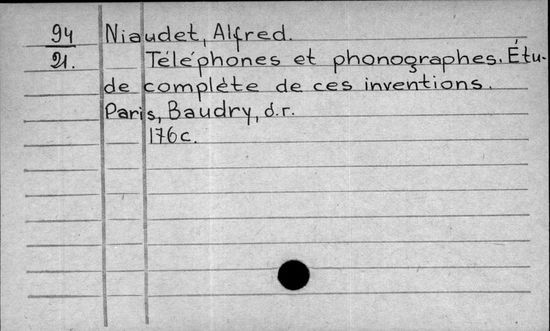 94 Niaudet, Alfred.
21. Téléphones et phonographes. Étu-
de complète de ces inventions.
Paris, Baudry, d.r.
176c.